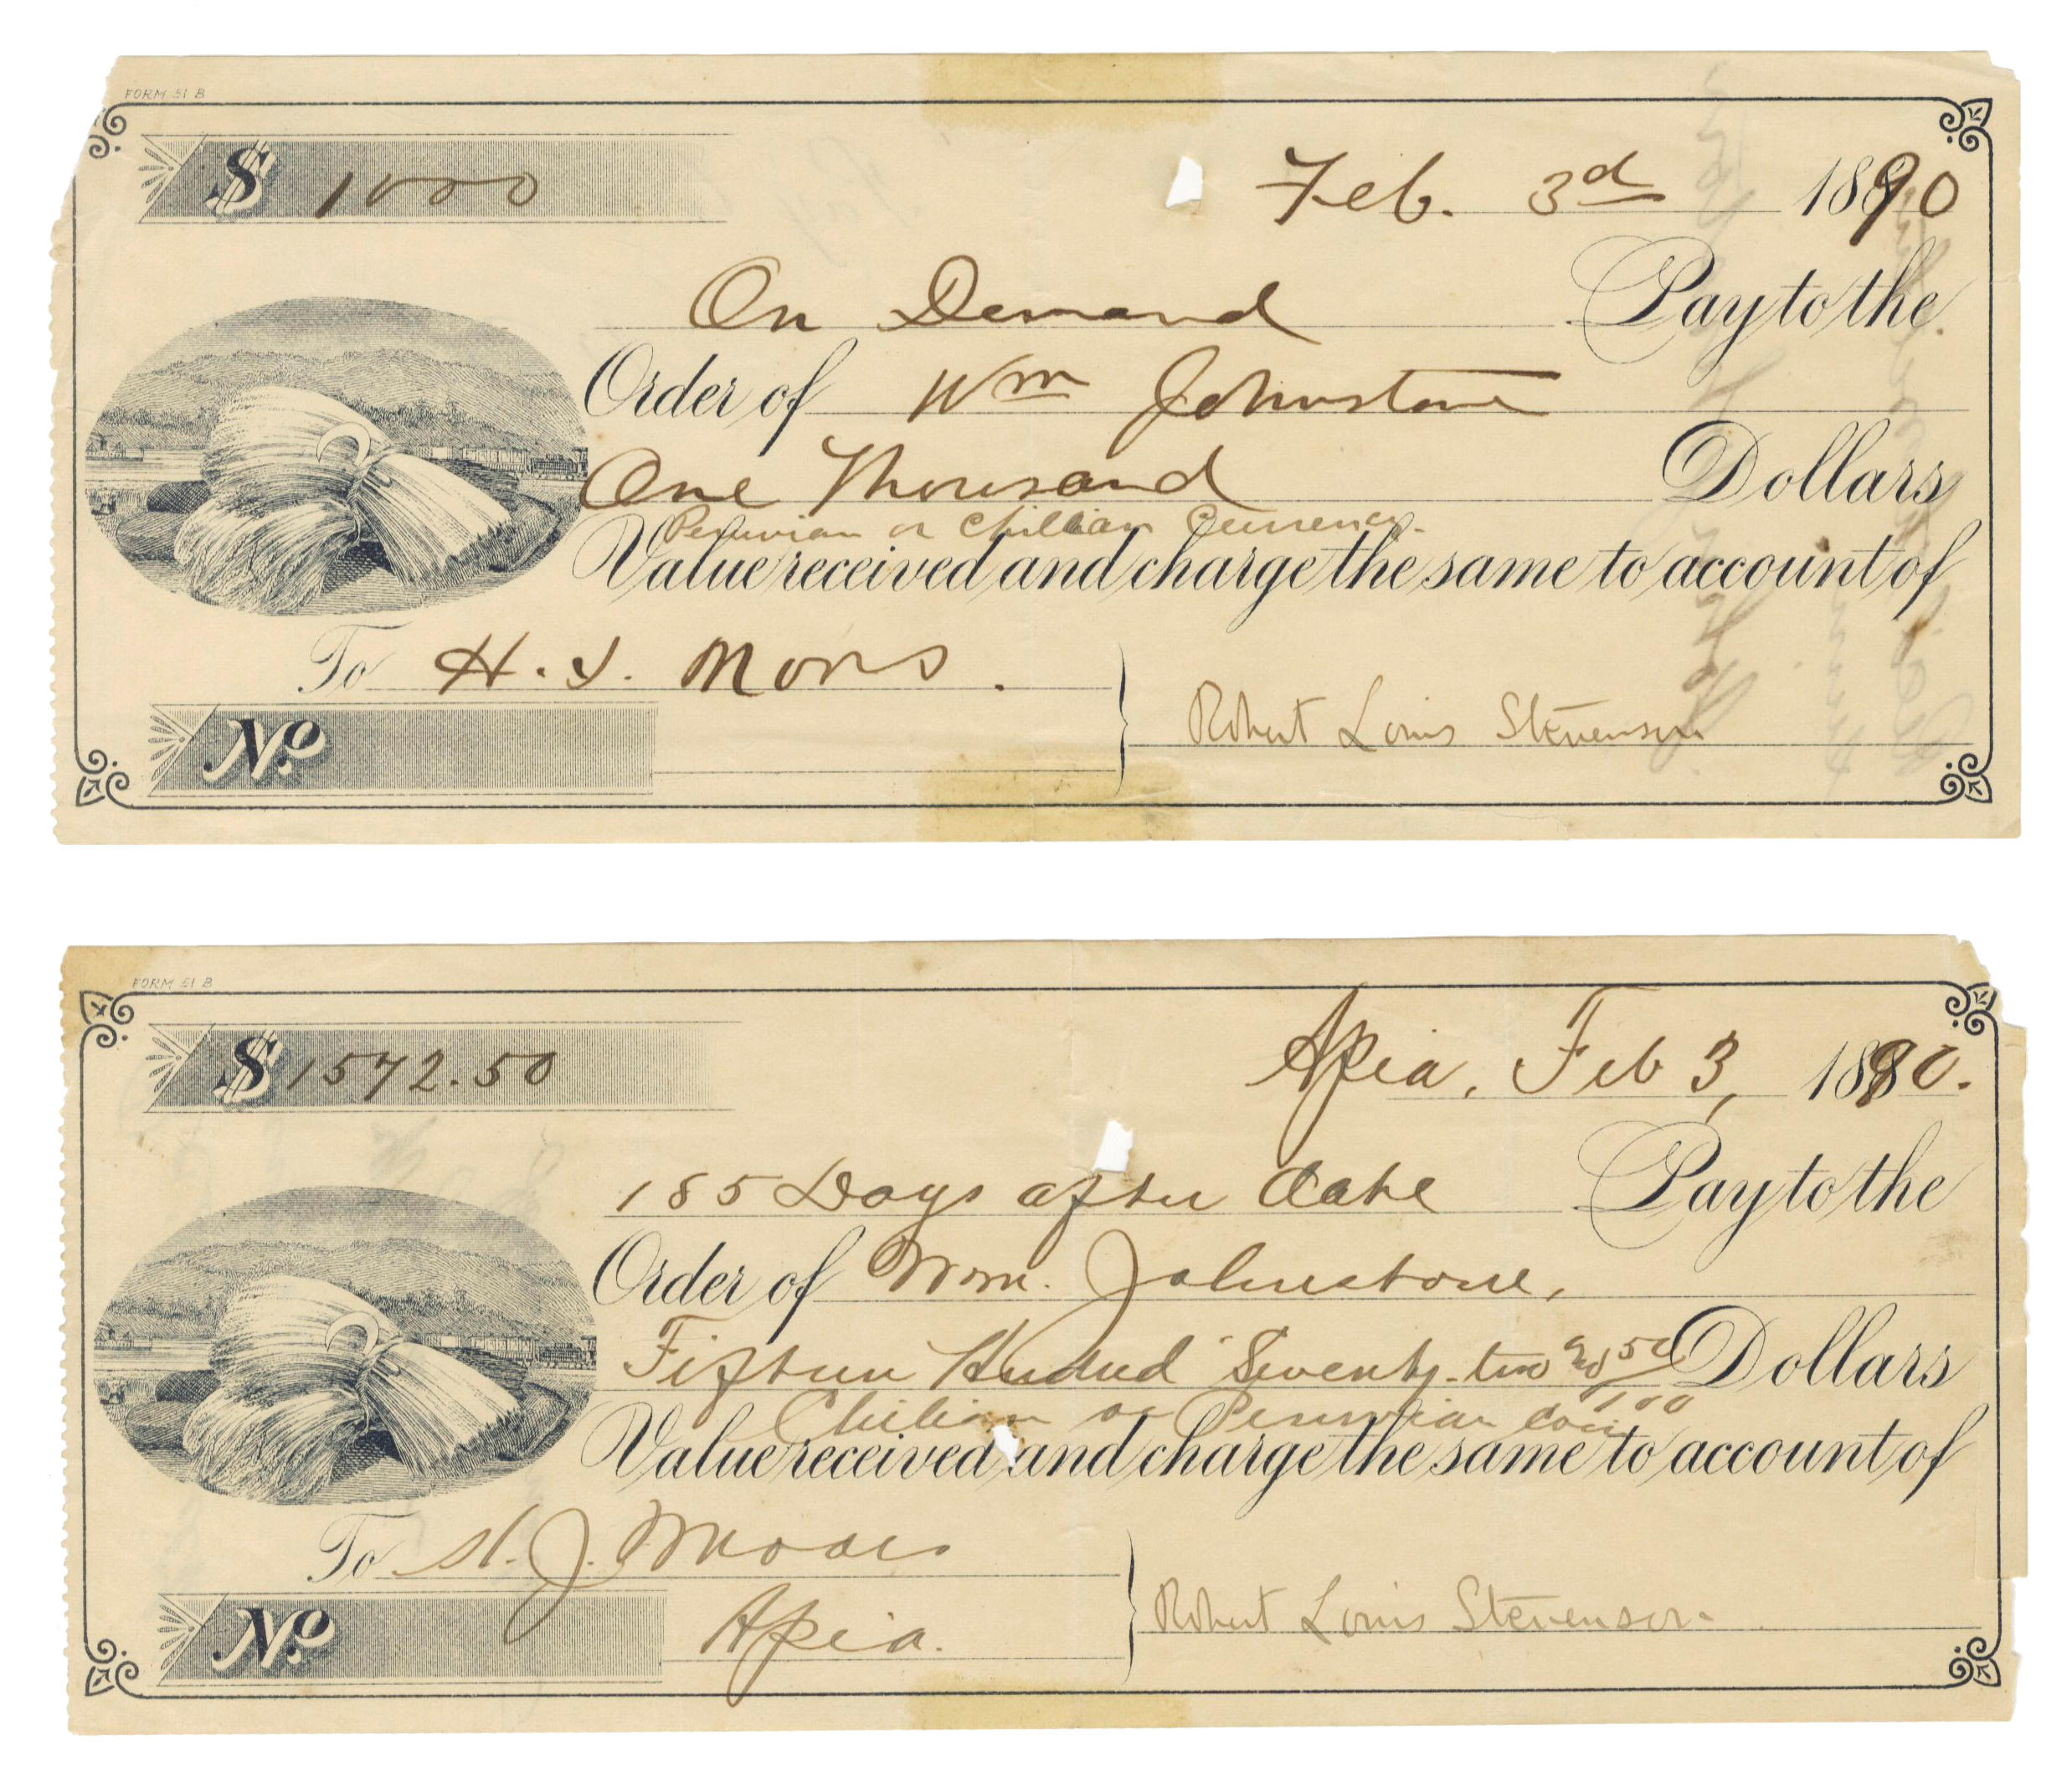 FORM 51 B
$ 1000
Feb. 3d 1890
On Demand Pay to the
Order of Wm Johnstone
One Thousand Dollars
Peruvian or Chillian Currency.
Value received and charge the same to account of
To H. J. Moors.
Robert Louis Stevenson
No.
FORM 51 B
$ 1572.50
Apia, Feb 3, 1890.
185 Days after date Pay to the
Order of Wm. Johnstone,
Fifteen Hundred Seventy-two and 50/100 Dollars
Chilian or Peruvian coin
Value received and charge the same to account of
To H. J. Moors
Robert Louis Stevenson
No. Apia.